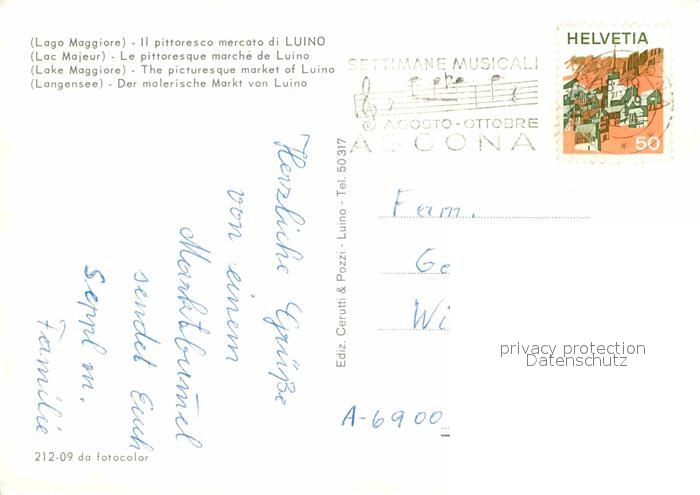 (Lago Maggiore) - Il pittoresco mercato di LUINO
(Lac Majeur) - Le pittoresque marché de Luino
(Lake Maggiore) - The picturesque market of Luino
(Langensee) - Der malerische Markt von Luino
SETTIMANE MUSICALI
AGOSTO-OTTOBRE
ASCONA
HELVETIA
50
Herzliche Grüße
von einem
Marktbumel
sendet Euch
Seppl m.
Familie
Ediz. Cerutti & Pozzi - Luino - Tel. 50317
Fam.
Ge
Wi
privacy protection
Datenschutz
A-6900
212-09 da fotocolor